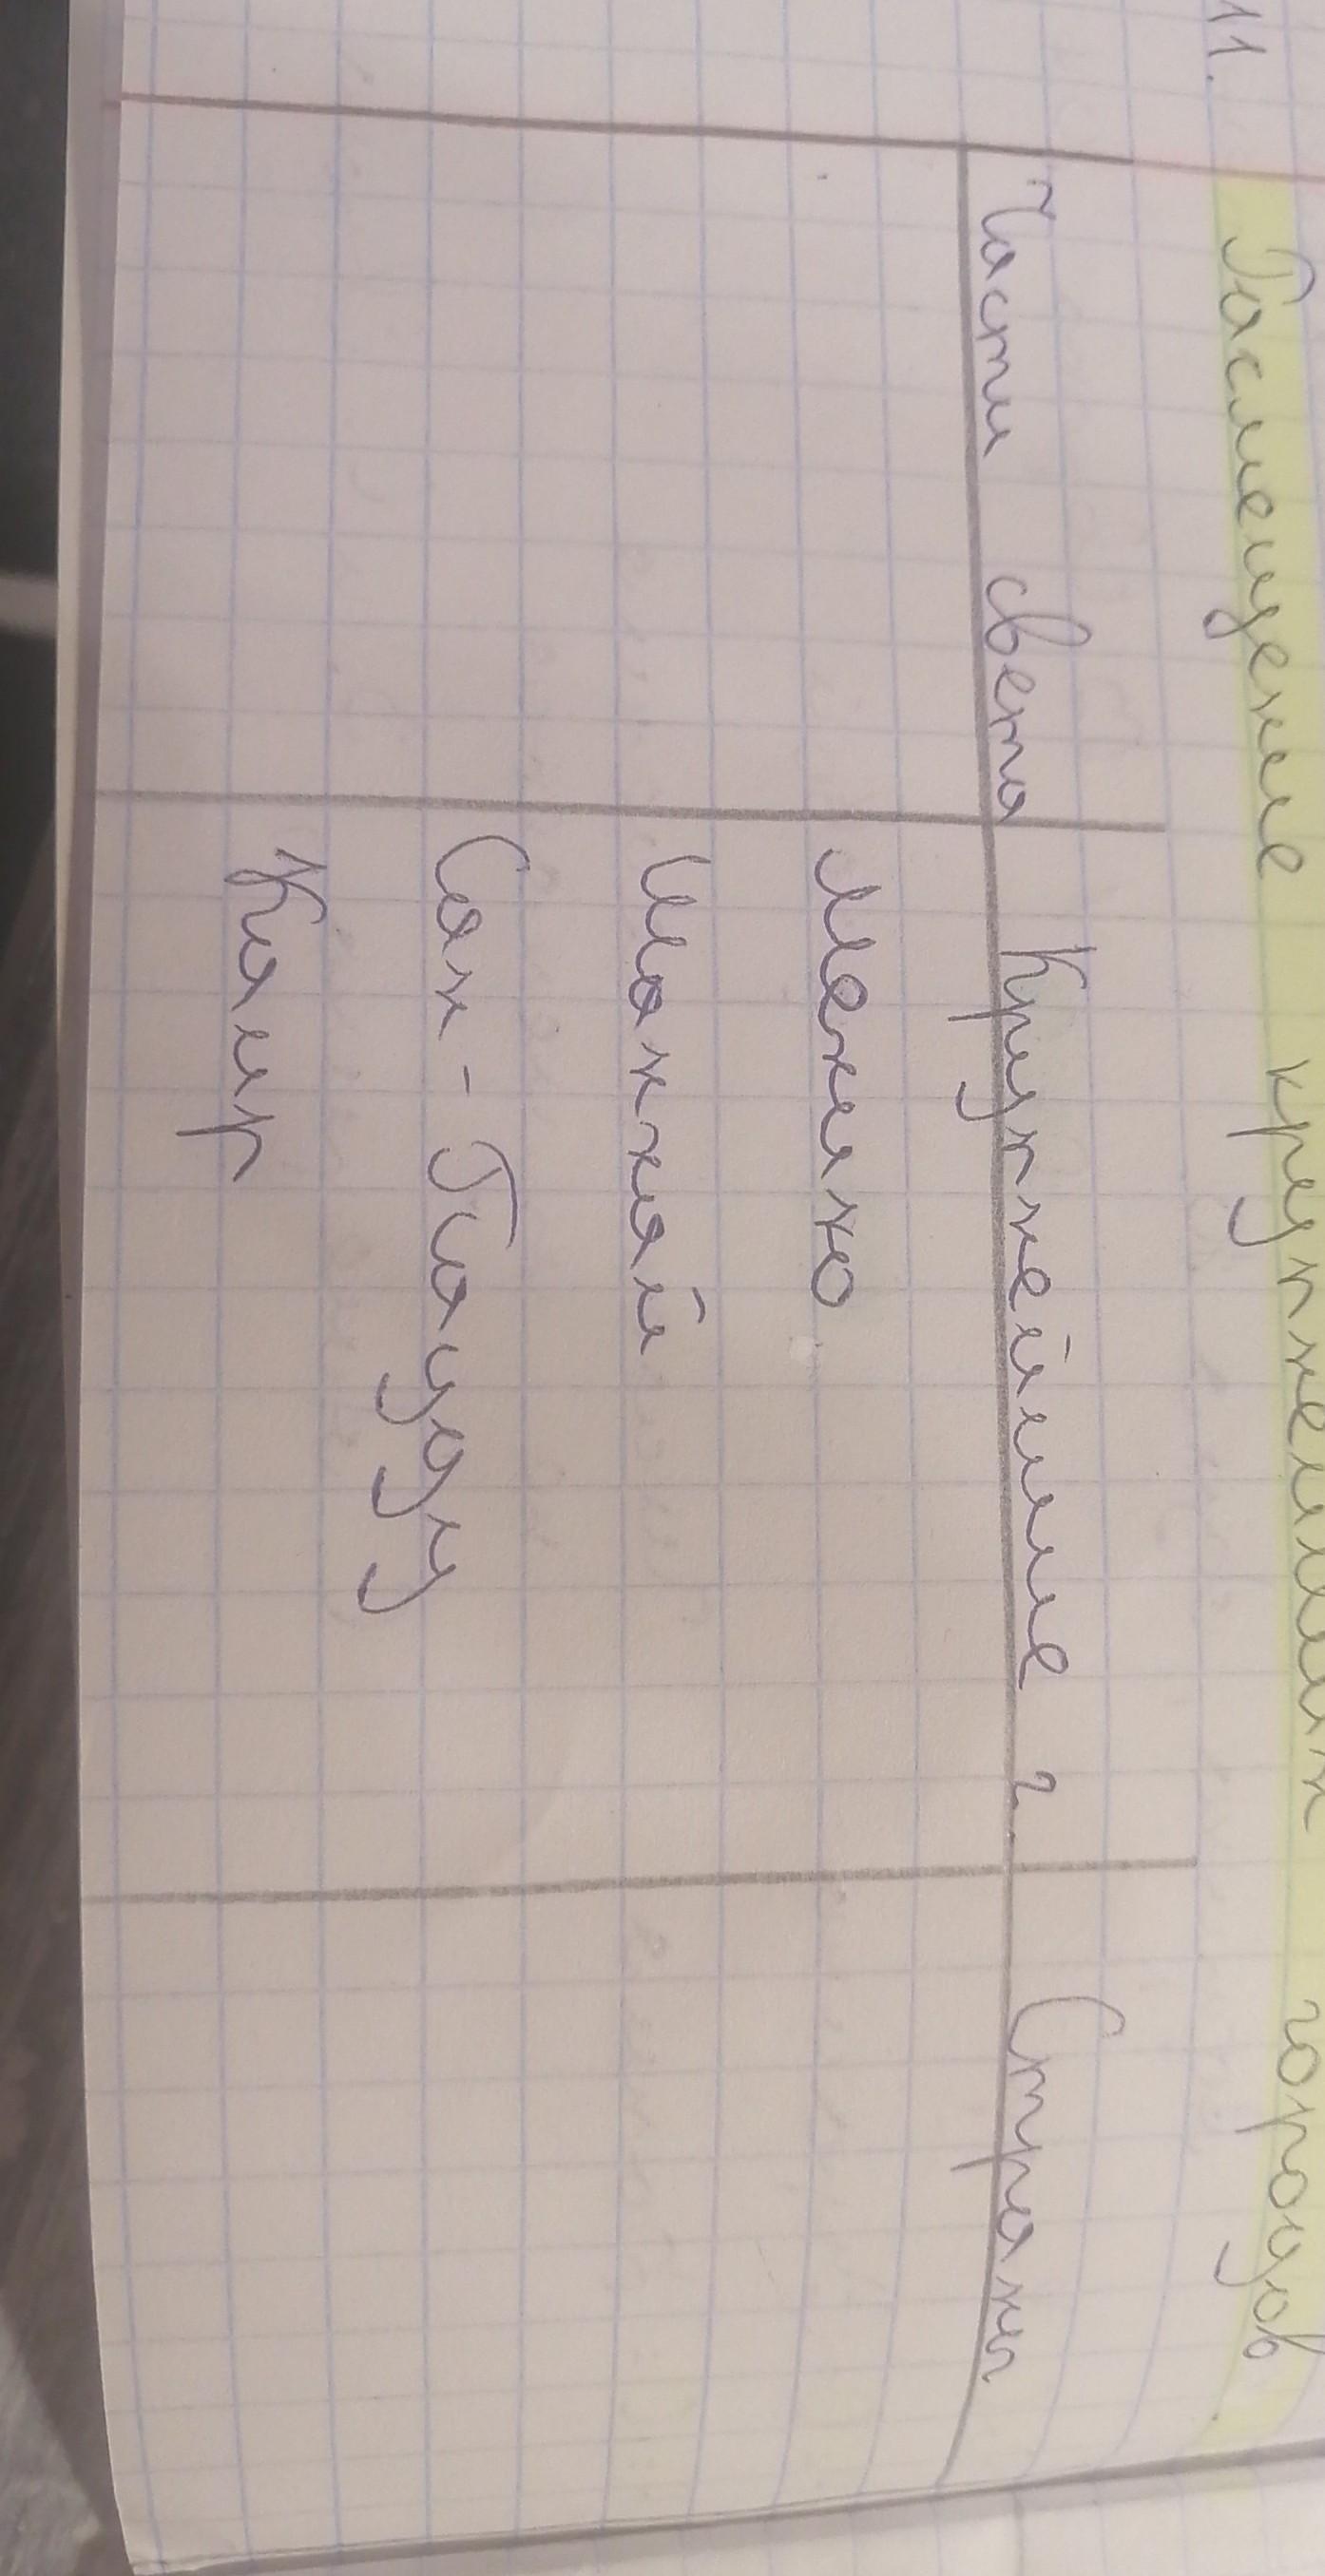 11. Расмещение крупнейших городов
Части света Крупнейшие г. Страны
Мехико
Шанхай
Сан-Паулу
Каир